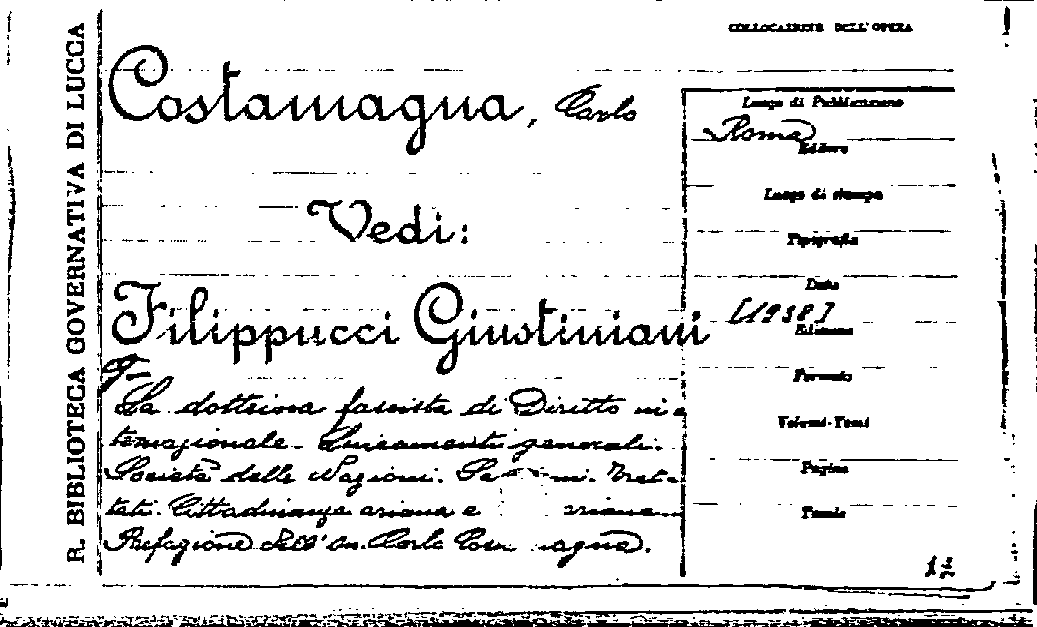 R. BIBLIOTECA GOVERNATIVA DI LUCCA
COLLOCAZIONE DELL'OPERA
Costamagna, Carlo
Vedi:
Filippucci Giustiniani
La dottrina fascista di Diritto in
ternazionale. Lineamenti generali.
Società delle Nazioni. Trat
tati. Cittadinanza ariana e
Prefazione dell'on. Carlo Cos agna.
Luogo di Pubblicazione
Roma
Editore
Luogo di stampa
Tipografia
Data
[1938]
Edizione
Formato
Volumi-Tomi
Pagine
Tavole